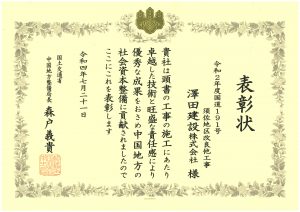 表彰状
令和2年度国道191号
須佐地区改良他工事
澤田建設株式会社 様
貴社は頭書の工事の施工にあたり
卓越した技術と旺盛な責任感により
優秀な成果をおさめ中国地方の
社会資本整備に貢献されましたので
ここにこれを表彰します
令和四年七月二十一日
国土交通省
中国地方整備局長 森戸義貴